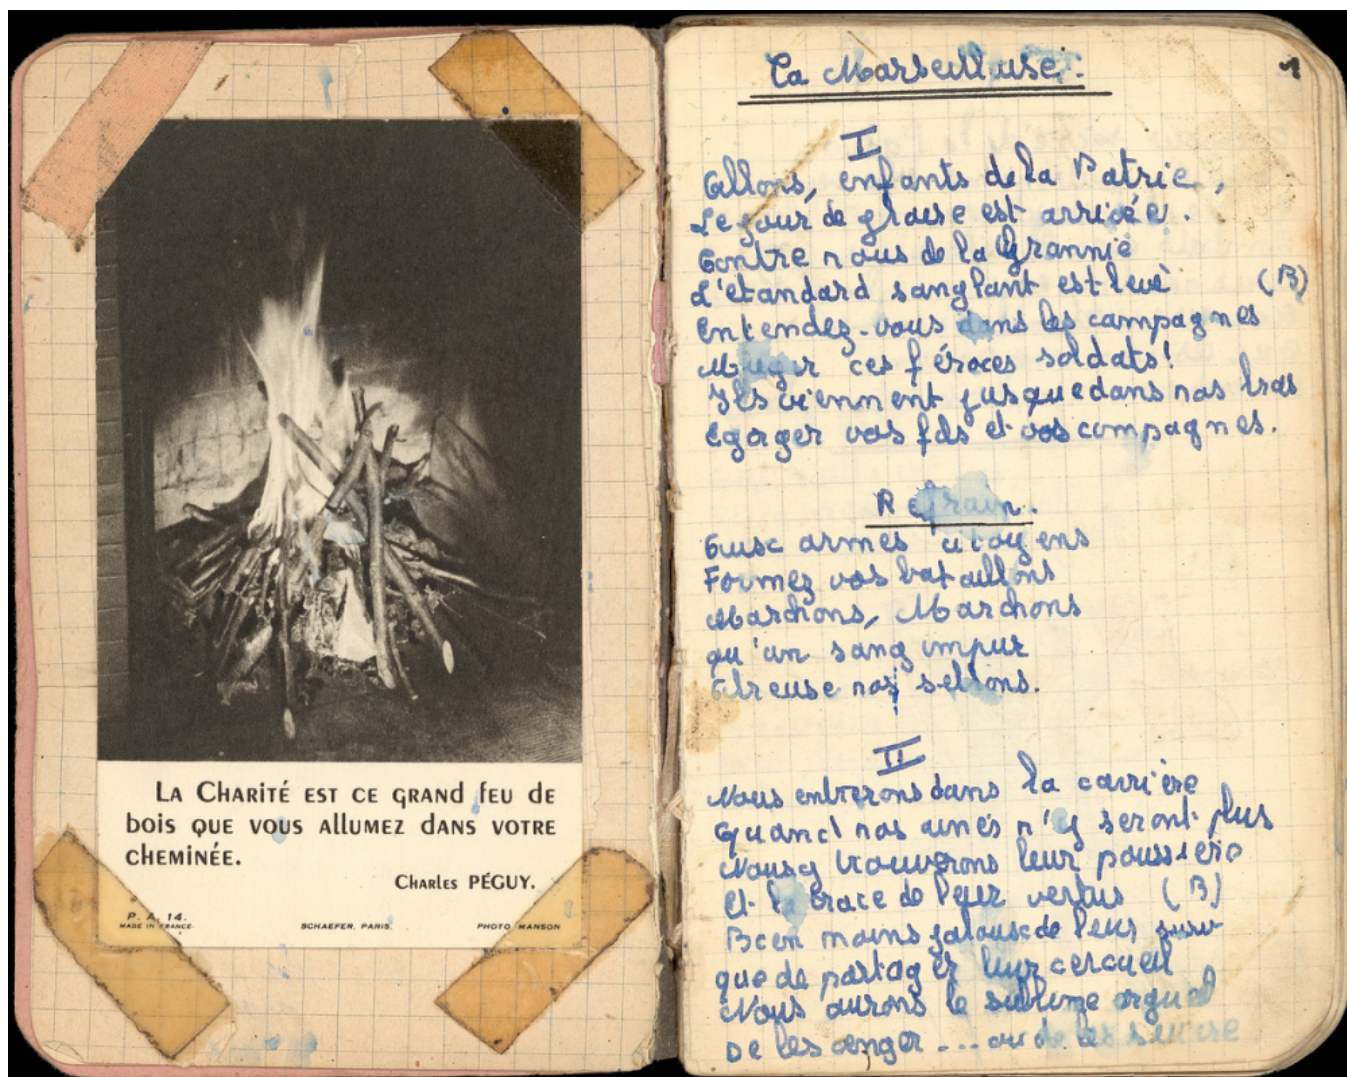 LA CHARITÉ EST CE GRAND FEU DE
BOIS QUE VOUS ALLUMEZ DANS VOTRE
CHEMINÉE.
Charles PÉGUY.
P. A. 14.
MADE IN FRANCE.
SCHAEFER, PARIS.
PHOTO MANSON
La Marseillaise.
1
I
Allons, enfants de la Patrie,
Le jour de gloire est arrivée.
Contre nous de la tyrannie
L'étandard sanglant est levé (B)
Entendez-vous dans les campagnes
Mugir ces féroces soldats!
Ils viennent jusque dans nos bras
Egorger vos fils et vos compagnes.
Refrain.
Aux armes citoyens
Formez vos bataillons
Marchons, Marchons
qu'un sang impur
Abreuse nos sellons.
II
Nous entrerons dans la carrière
Quand nos ainés n'y seront plus
Nous y trouverons leur poussière
Et la trace de leur vertus (B)
Bien moins jaloux de leus
que de partager leur cercueil
Nous aurons le sublime orguel
De les venger ... ou de les suivre